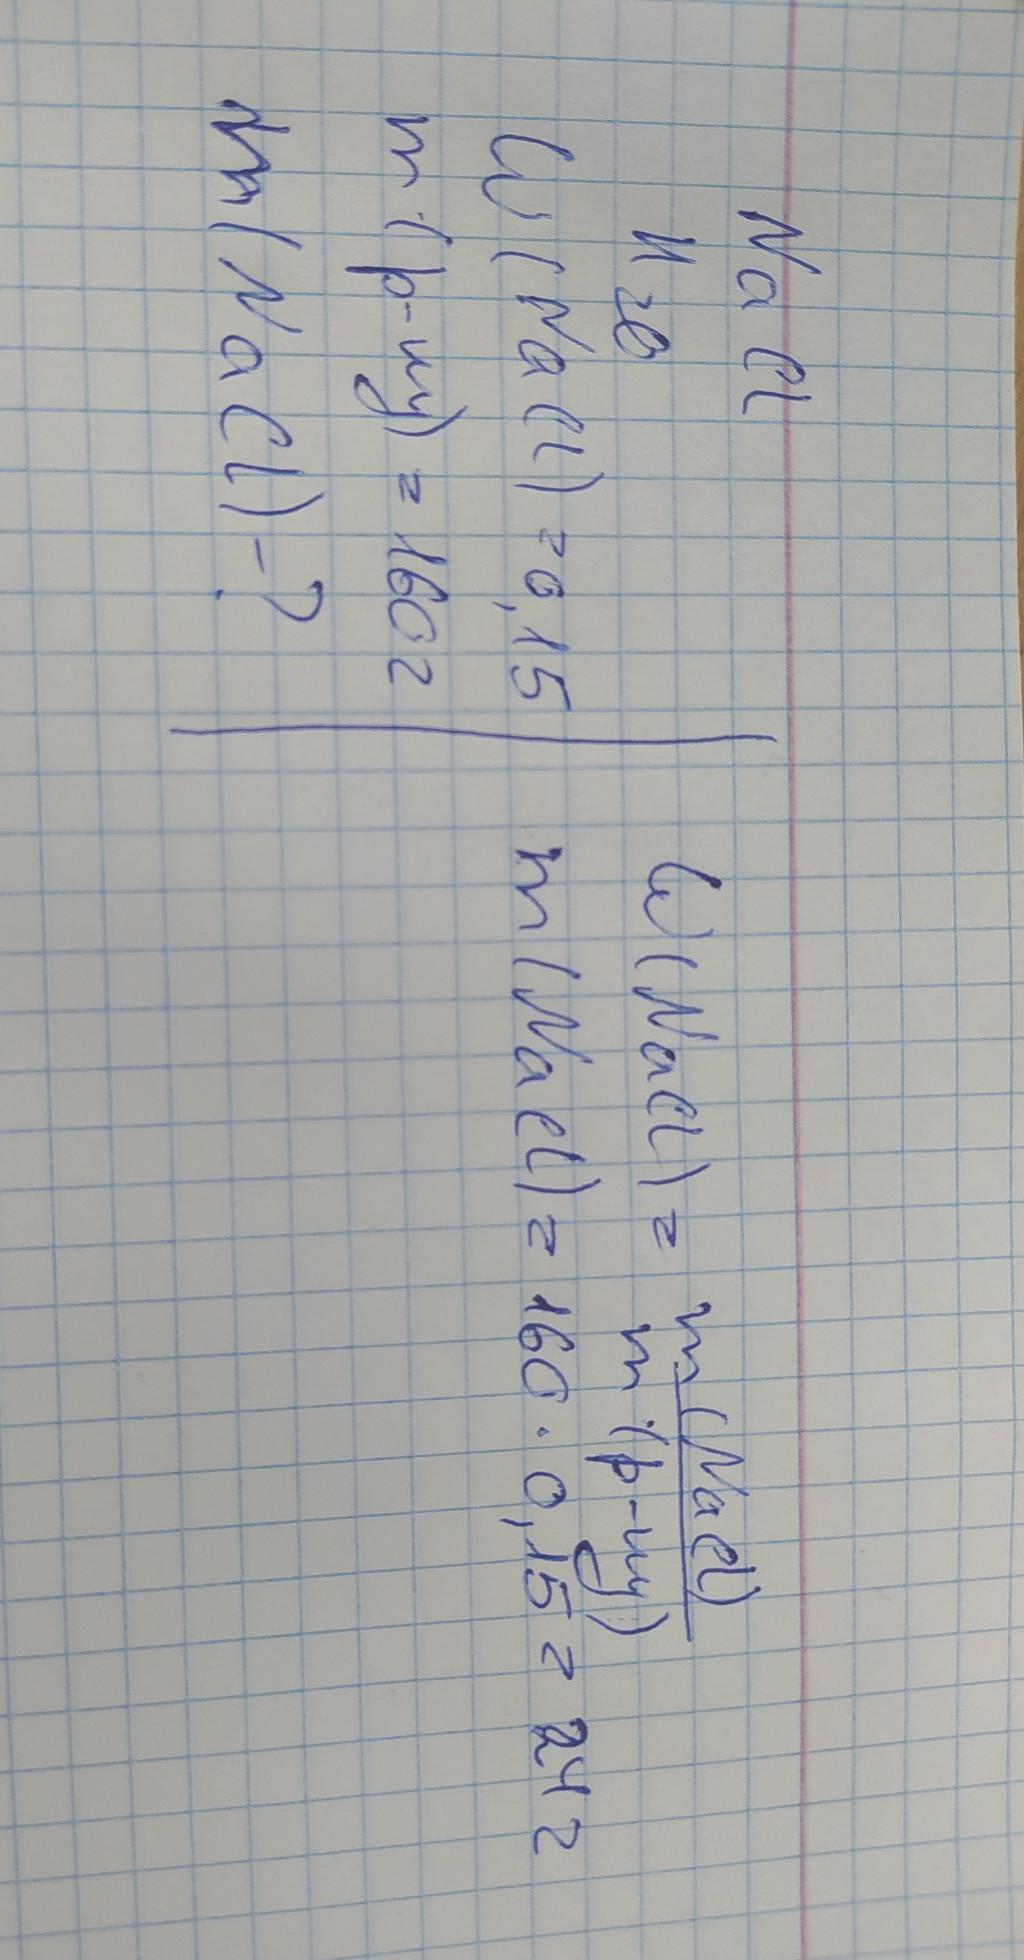 NaCl
H2O
W(NaCl) = 0,15
m(р-ну) = 160г
m(NaCl) - ?
W(NaCl) = m(NaCl)
m(р-ну)
m(NaCl) = 160 · 0,15 = 24 г